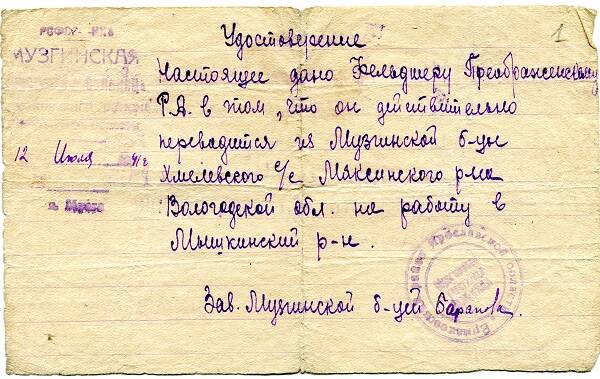 1
Удостоверение
РСФСР
МУЗГИНСКАЯ
Настоящее дано Фельдшеру Преображенскому
Р.А. в том, что он действительно
переводится из Музгинской б-цы
12 Июля 41 г.
Хмелевского с/с Максинского р-на
Вологодской обл. на работу в
Мышкинский р-н.
Зав. Музгинской б-цей Баранова.
Ярославской области